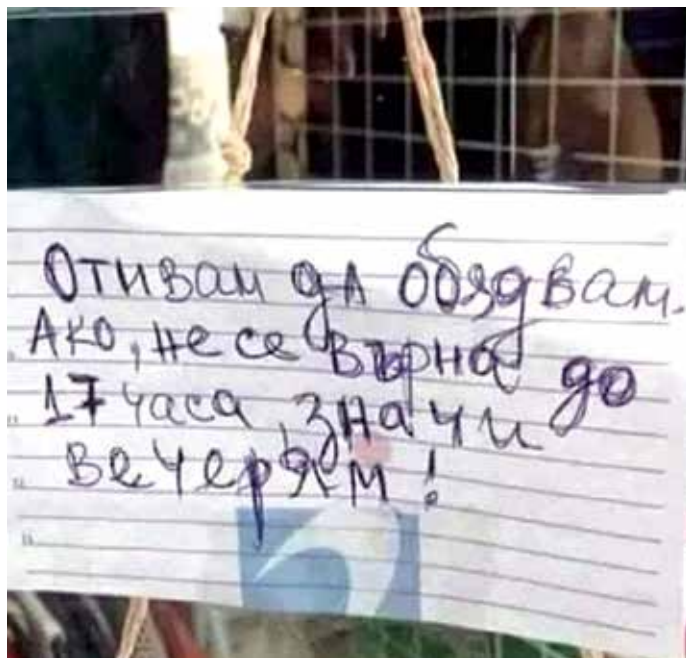 Отивам да обядвам.
Ако, не се върна до
17 часа значи
вечерям!